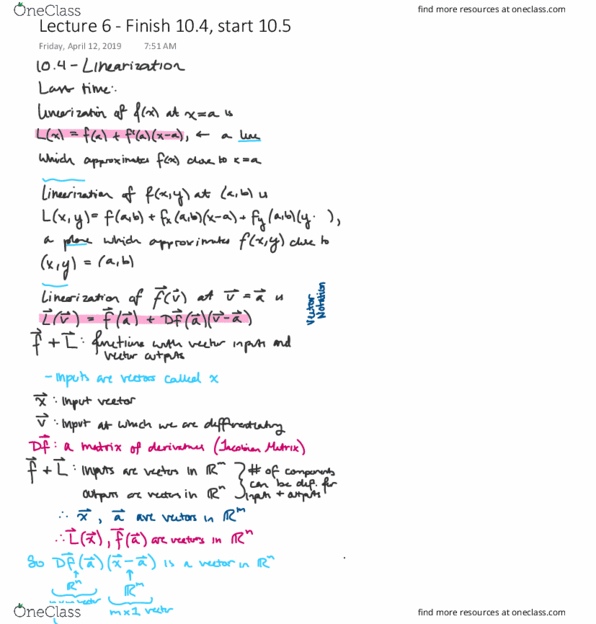 OneClass
find more resources at oneclass.com
Lecture 6 - Finish 10.4, start 10.5
Friday, April 12, 2019 7:51 AM
10.4 - Linearization
Last time:
Linearization of f(x) at x=a is
L(x) = f(a) + f'(a)(x-a), ← a line
which approximates f(x) close to x=a
Linearization of f(x,y) at (a,b) is
L(x,y) = f(a,b) + fx(a,b)(x-a) + fy(a,b)(y- ),
a plane which approximates f(x,y) close to
(x,y) = (a,b)
Linearization of f⃗(v⃗) at v⃗ = a⃗ is
L⃗(v⃗) = f⃗(a⃗) + Df⃗(a⃗)(v⃗-a⃗)
Vector Notation
f⃗ + L⃗ : functions with vector inputs and
vector outputs
- Inputs are vectors called x
x⃗ : input vector
v⃗ : input at which we are differentiating
Df⃗ : a matrix of derivatives (Jacobian Matrix)
f⃗ + L⃗ : Inputs are vectors in ℝᵐ
outputs are vectors in ℝⁿ
# of components
can be diff. for
inputs + outputs
∴ x⃗, a⃗ are vectors in ℝᵐ
∴ L⃗(x⃗), f⃗(a⃗) are vectors in ℝⁿ
So Df⃗(a⃗)(x⃗-a⃗) is a vector in ℝⁿ
↑ ↑
ℝⁿ ℝᵐ
vector m×1 vector
OneClass
find more resources at oneclass.com